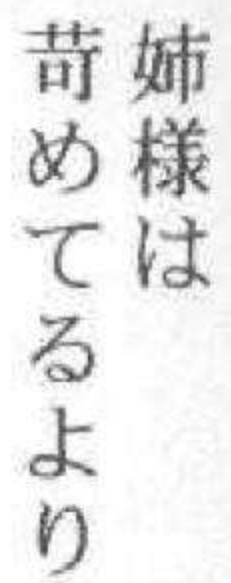 姉様は
苛めてるより